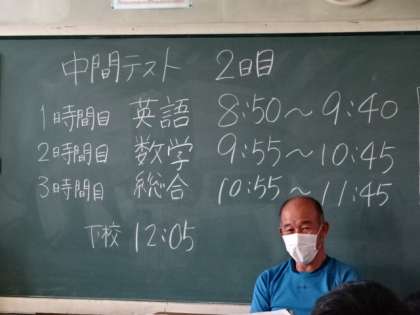 中間テスト 2日目
1時間目 英語 8:50～9:40
2時間目 数学 9:55～10:45
3時間目 総合 10:55～11:45
下校 12:05